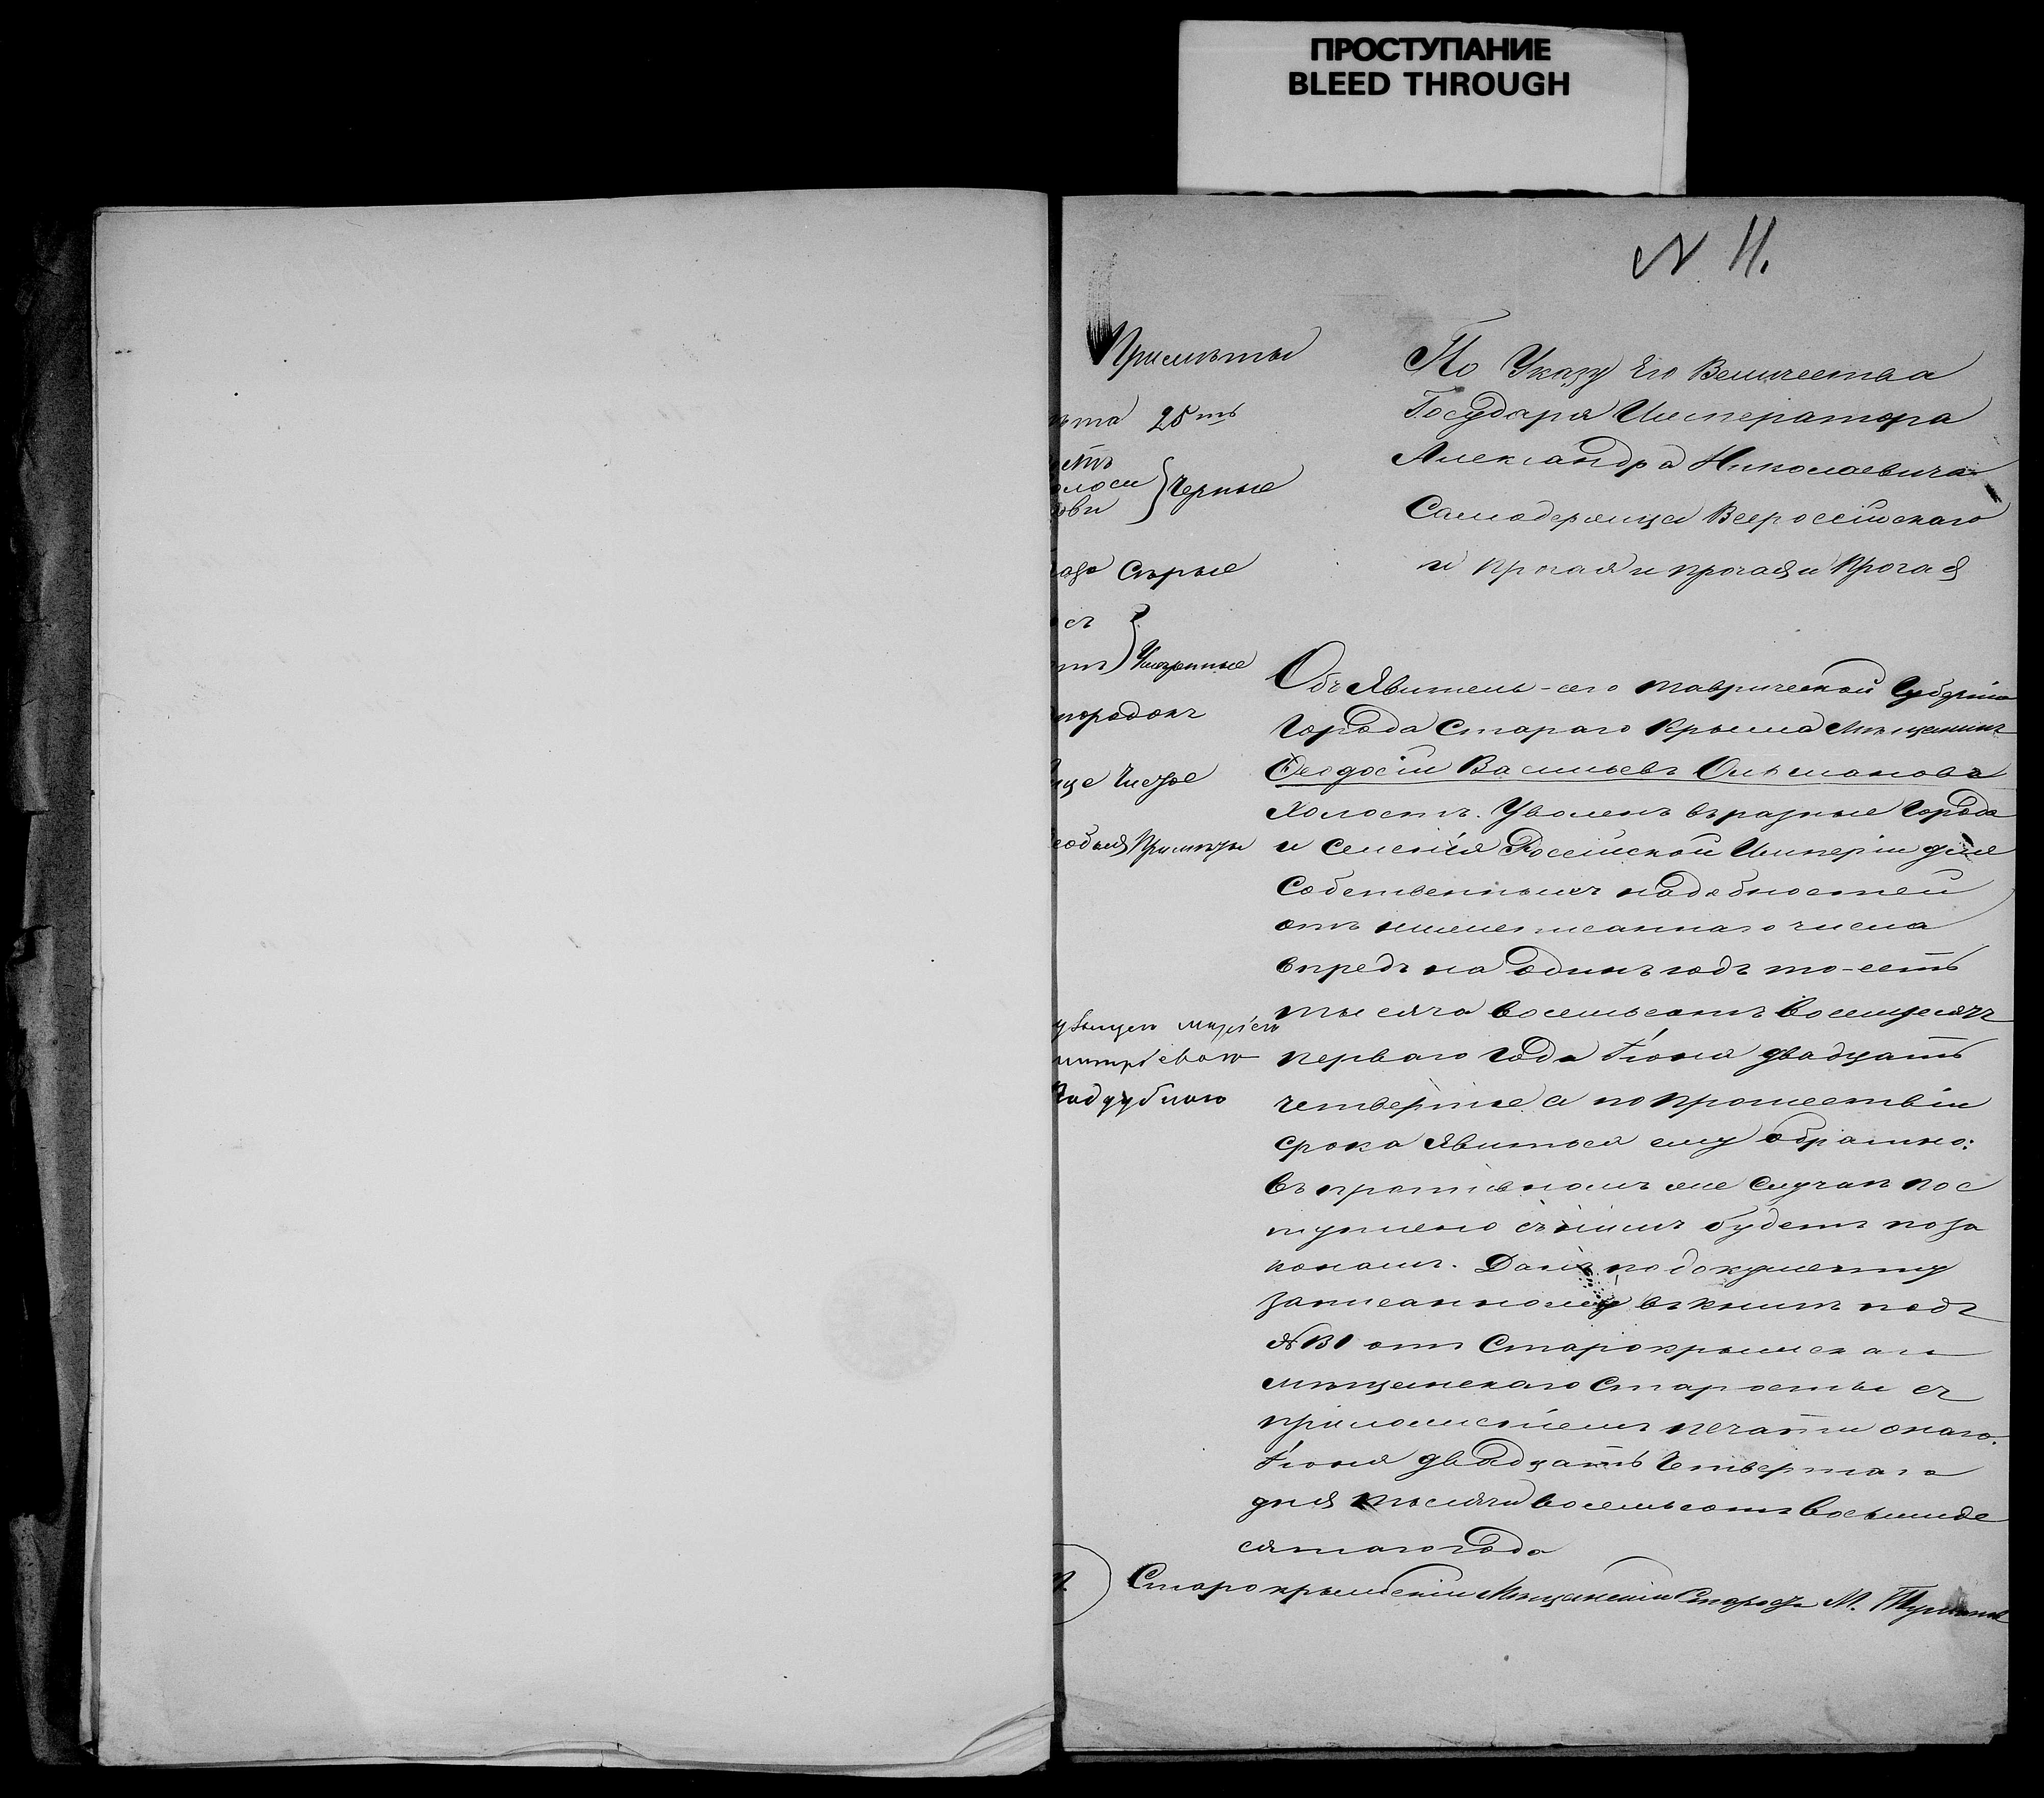 ПРОСТУПАНИЕ
BLEED THROUGH
N 11.
Примѣты
ѣта 25ть
остъ
олоси
ови
} Черные
аза Сѣрые
осъ
отъ
} Умѣренные
подбородокъ
лице Чистое
собыя Примѣты
По Указу Его Величества
Государя Императора
Александра Николаевича
Самодержца Всероссійскаго
и прочая и прочая и Прочая
Объявитель сего Таврической Губерніи
Города Стараго Крыма Мѣщанинъ
Феодосій Васильевъ
Холостъ. Уволенъ въ разные Города
и Селенія Россійской Имперіи для
Собственныхъ надобностей
отъ нижеписаннаго числа
впредь на одинъ годъ то-есть
тысяча восемьсотъ восемдесятъ
перваго года Іюня двадцать
четвертое а по прошествіи
срока явиться ему обратно:
въ противномъ же случаѣ пос
туплено съ нимъ будетъ по за
конамъ. Данъ по документу
записанному въ книгѣ подъ
№ 131 отъ Старокрымскаго
мѣщанскаго Старосты съ
приложеніемъ печати онаго.
Іюня двадцать Четвертаго
дня тысяча восемьсотъ восьмиде
сятаго года
Старокрымскій Мѣщанскій Староста М.